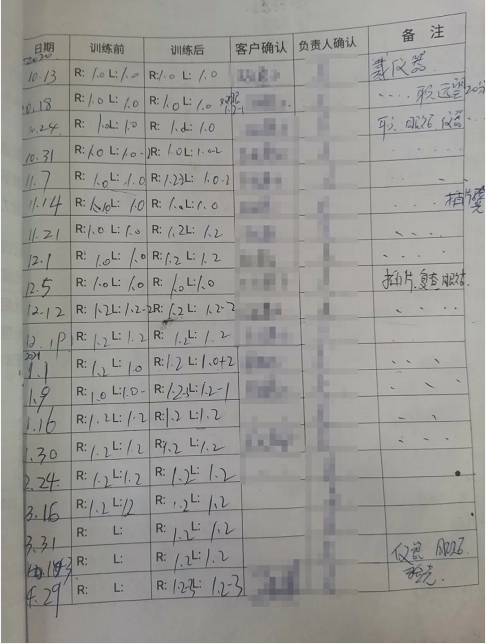 日期 训练前 训练后 客户确认 负责人确认 备 注
2020
10.13 R: 1.0 L: 1.0 R: 1.0 L: 1.0 戴仪器
10.18 R: 1.0 L: 1.0 R: 1.0 L: 1.0 远望20分
10.24 R: 1.0 L: 1.0 R: 1.0 L: 1.0 仪器
10.31 R: 1.0 L: 1.0-2 R: 1.0 L: 1.0-2
11.7 R: 1.0 L: 1.0 R: 1.2-3 L: 1.0-2
11.14 R: 1.0 L: 1.0 R: 1.0 L: 1.0
11.21 R: 1.0 L: 1.0 R: 1.2 L: 1.2
12.1 R: 1.0 L: 1.0 R: 1.2 L: 1.2
12.5 R: 1.0 L: 1.0 R: 1.0 L: 1.0 插片.复查
12.12 R: 1.2 L: 1.2-2 R: 1.2 L: 1.2-2
12.19 R: 1.2 L: 1.2 R: 1.2 L: 1.2
2021
1.1 R: 1.2 L: 1.0 R: 1.2 L: 1.0+2
1.9 R: 1.0 L: 1.0- R: 1.2-3 L: 1.2-1
1.16 R: 1.2 L: 1.2 R: 1.2 L: 1.2
1.30 R: 1.2 L: 1.2 R: 1.2 L: 1.2
2.24 R: 1.2 L: 1.2 R: 1.2 L: 1.2
3.16 R: 1.2 L: 1.2 R: 1.2 L: 1.2
3.31 R: L: R: 1.2 L: 1.2
R: L: R: 1.2 L: 1.2 仪器
4.29 R: L: R: 1.2-3 L: 1.2-3 验光.